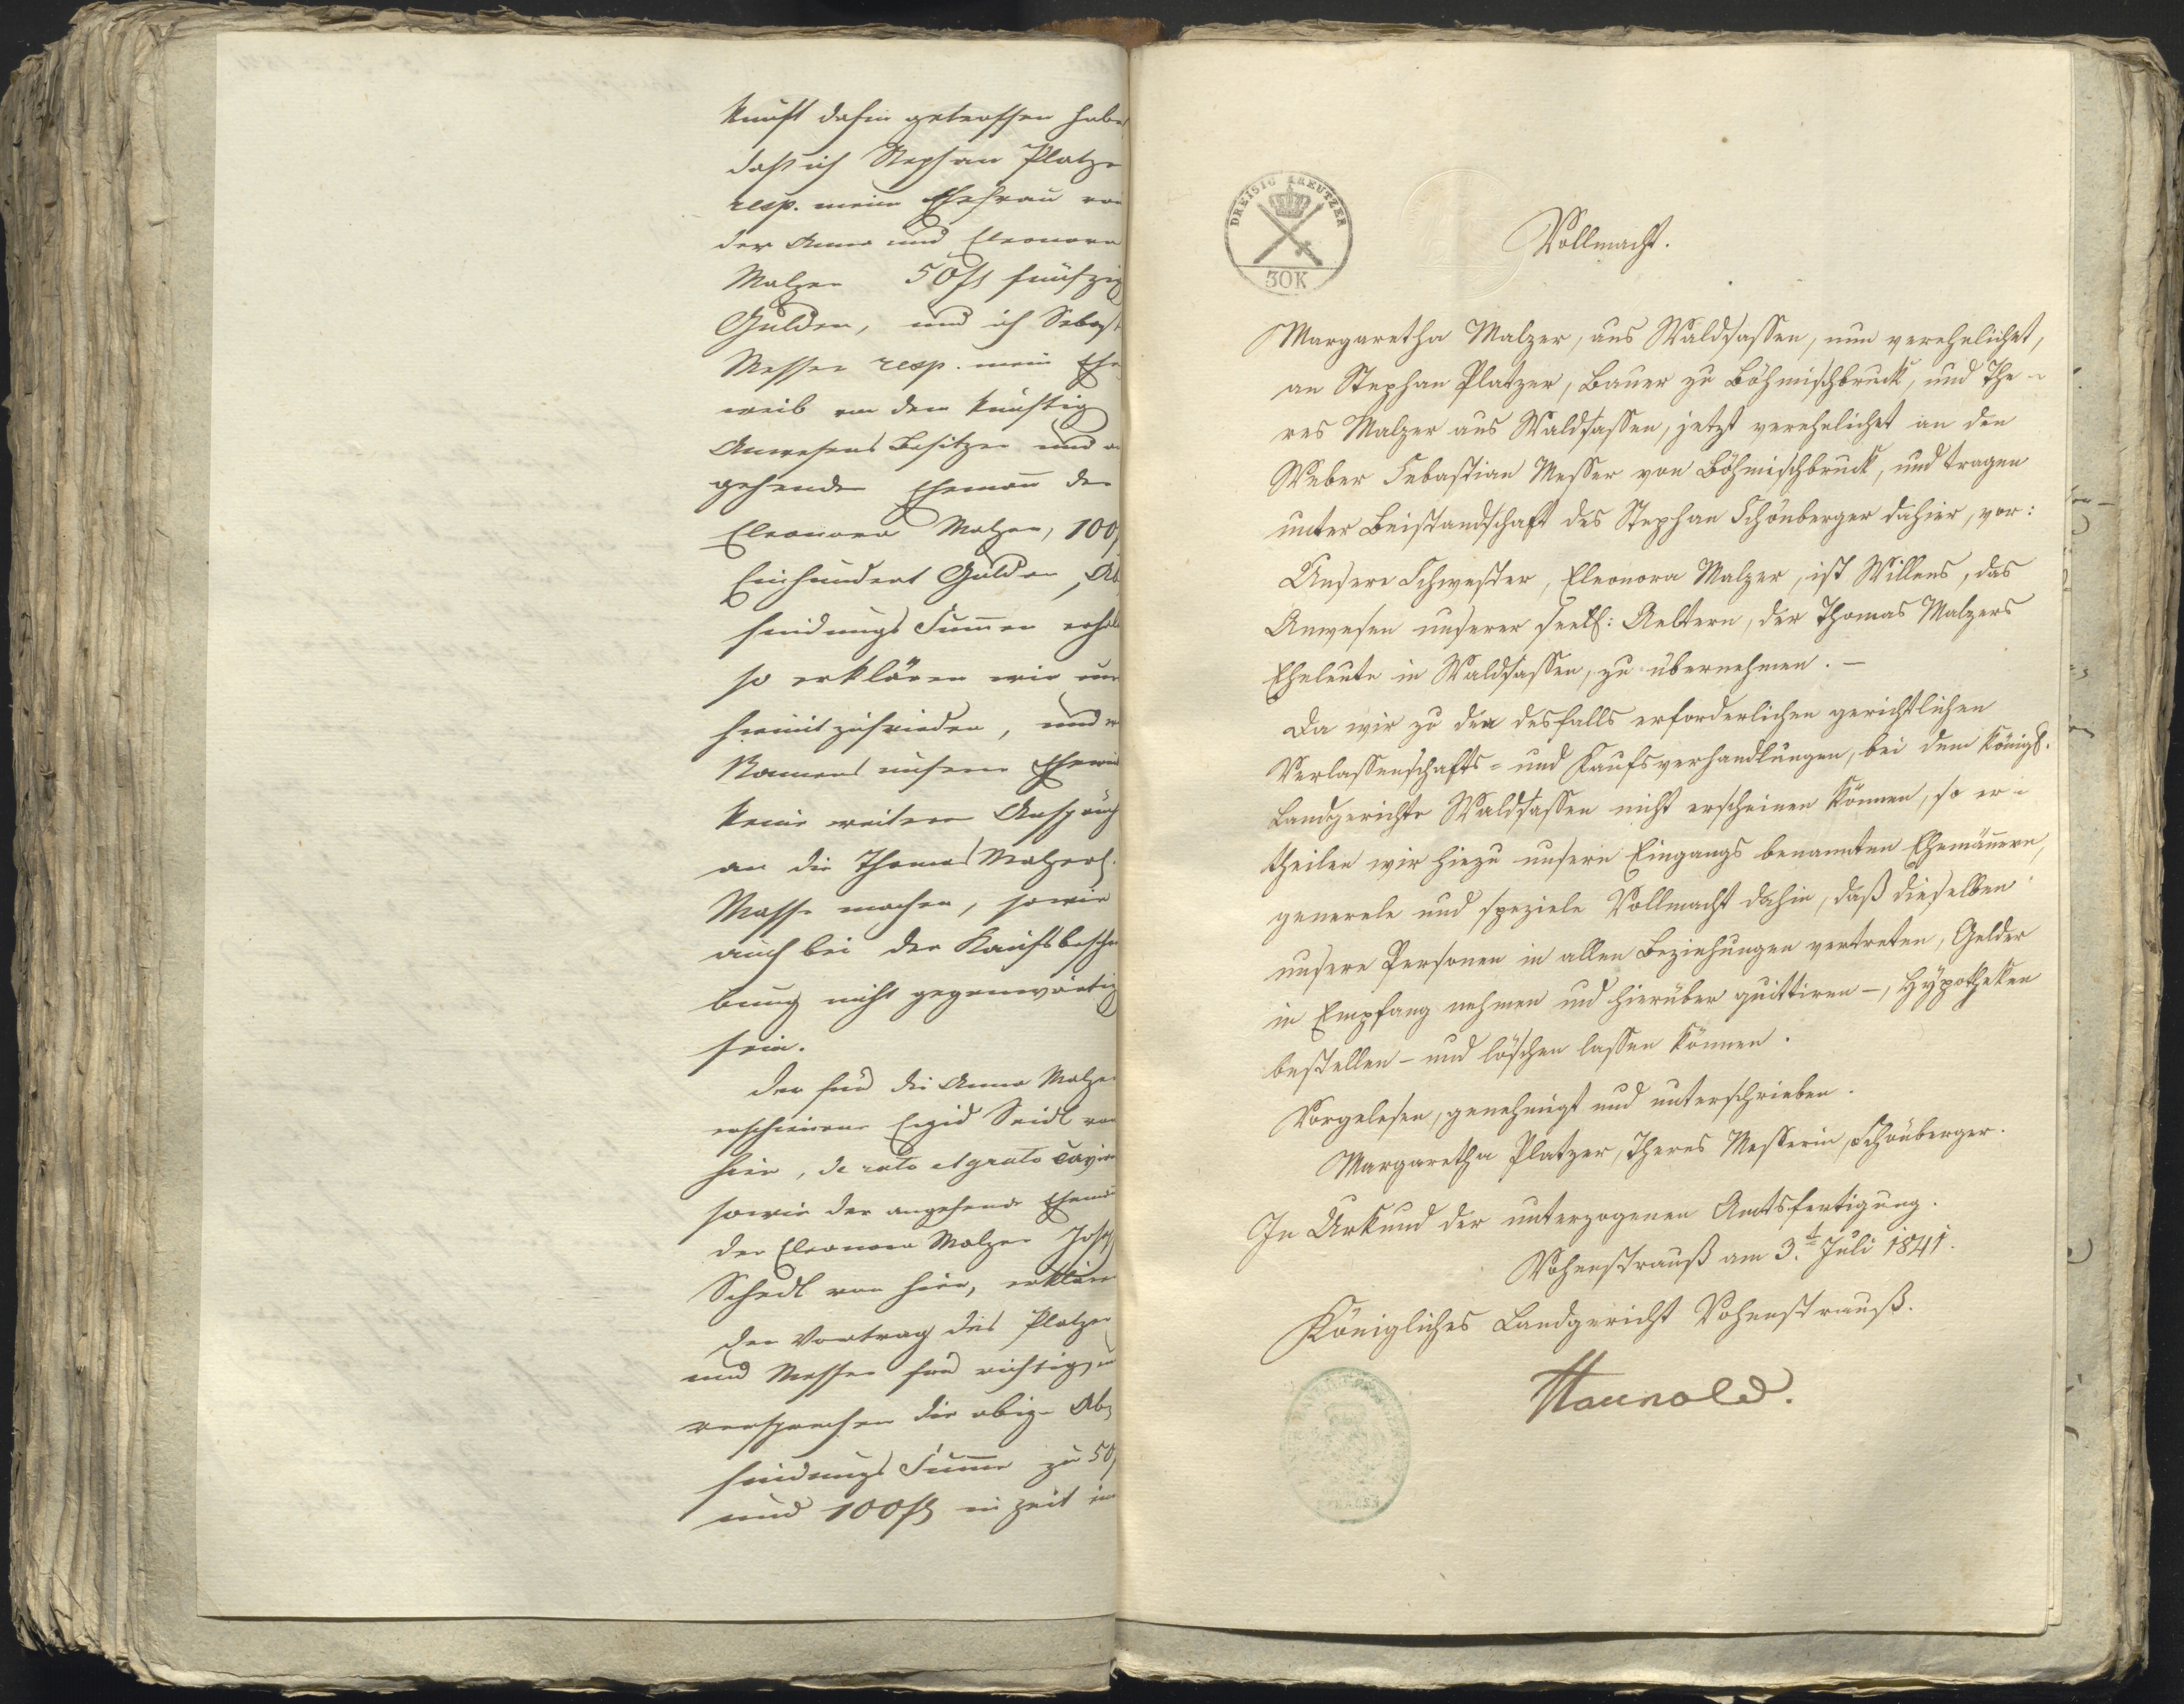 kunft dahin getroffen habe
daß ich Stephan Platzer
resp. meine Ehefrau von
der Anna und Eleonora
Malzer 50 fl fünfzig
Gulden, und ich Sebast
Messer resp. mein Ehe
weib von dem künftig
Anwesens Besitzer und an
gehenden Ehemañ der
Eleonora Malzer, 100
Einhundert Gulden, Ab
findungs Sum̄en erhal
so erklären wir uns
hiemit zufrieden, und
Namens unserer Ehewei
keine weitern Ansprüch
an die Thomas Malzersch.
Masse machen, sowie
auch bei der Kaufsbeschr
bung nicht gegenwärtig
sein.
Der für die Anna Malzer
erschienene Egid Seidl von
hier, de rato et grato cavir
sowie der angehende Ehemañ
der Eleonora Malzer Josef
Schedl von hier, erklären
den Vortrag des Platzer
und Messer für richtig, u
versprechen die obige Ab
findungs Sum̄e zu 50
und 100 fl in Zeit in
DREISIG KREUTZER
30K
Vollmacht.
Margaretha Malzer, aus Waldsassen, nun verehelichet,
an Stephan Platzer, Bauer zu Böhmischbruck, und The-
res Malzer aus Waldsassen, jetzt verehelichet an den
Weber Sebastian Messer von Böhmischbruck, und tragen
unter Beistandschaft des Stephan Schönberger dahier, vor:
Unsere Schwester, Eleonora Malzer, ist Willens, das
Anwesen unserer seel: Aeltern, der Thomas Malzers
Eheleute in Waldsassen, zu übernehmen. –
Da wir zu den desfalls erforderlichen gerichtlichen
Verlassenschafts= und Kaufsverhandlungen, bei dem Königl.
Landgerichte Waldsassen nicht erscheinen können, so er-
theilen wir hiezu unsern Eingangs benannten Ehemäñern,
generele und speziele Vollmacht dahin, daß dieselben
unsere Personen in allen Beziehungen vertreten, Gelder
in Empfang nehmen und hierüber quittiren –, Hypotheken
bestellen – und löschen lassen können.
Vorgelesen, genehmigt und unterschrieben.
Margaretha Platzer, Theres Messerin, Schönberger.
In Urkund der unterzogenen Amtsfertigung.
Vohenstrauß am 3.t Juli 1841.
Königliches Landgericht Vohenstrauß.
Haunold.